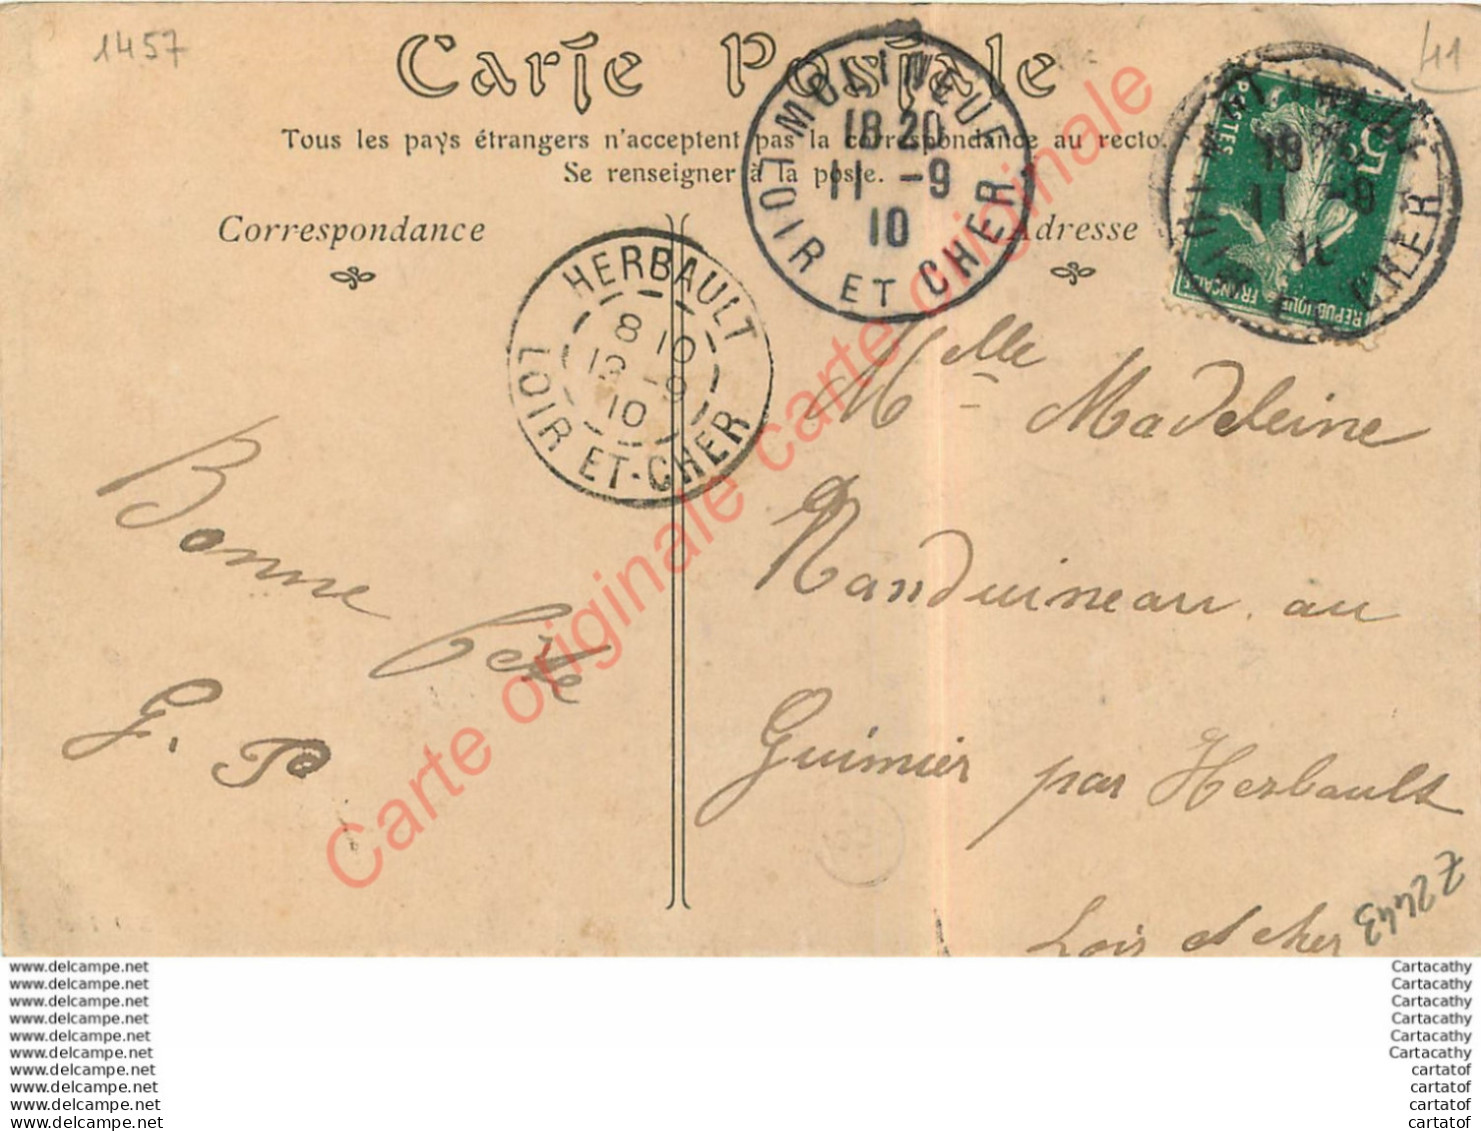 1457
41
Carte Postale
Tous les pays étrangers n'acceptent pas la correspondance au recto.
Se renseigner à la poste.
Correspondance
Adresse
MOLINEUF
18 20
11 -9
10
LOIR ET CHER
HERBAULT
8 10
12 -9
10
LOIR ET-CHER
5c
POSTES
REPUBLIQUE FRANÇAISE
18
11 -9
CHER
Bonne fête
G. P
Mlle Madeleine
Randuineau au
Guimier par Herbault
Loir et cher
Z2443
Carte originale carte originale
www.delcampe.net
www.delcampe.net
www.delcampe.net
www.delcampe.net
www.delcampe.net
www.delcampe.net
www.delcampe.net
www.delcampe.net
www.delcampe.net
www.delcampe.net
Cartacathy
Cartacathy
Cartacathy
Cartacathy
Cartacathy
Cartacathy
cartatof
cartatof
cartatof
cartatof